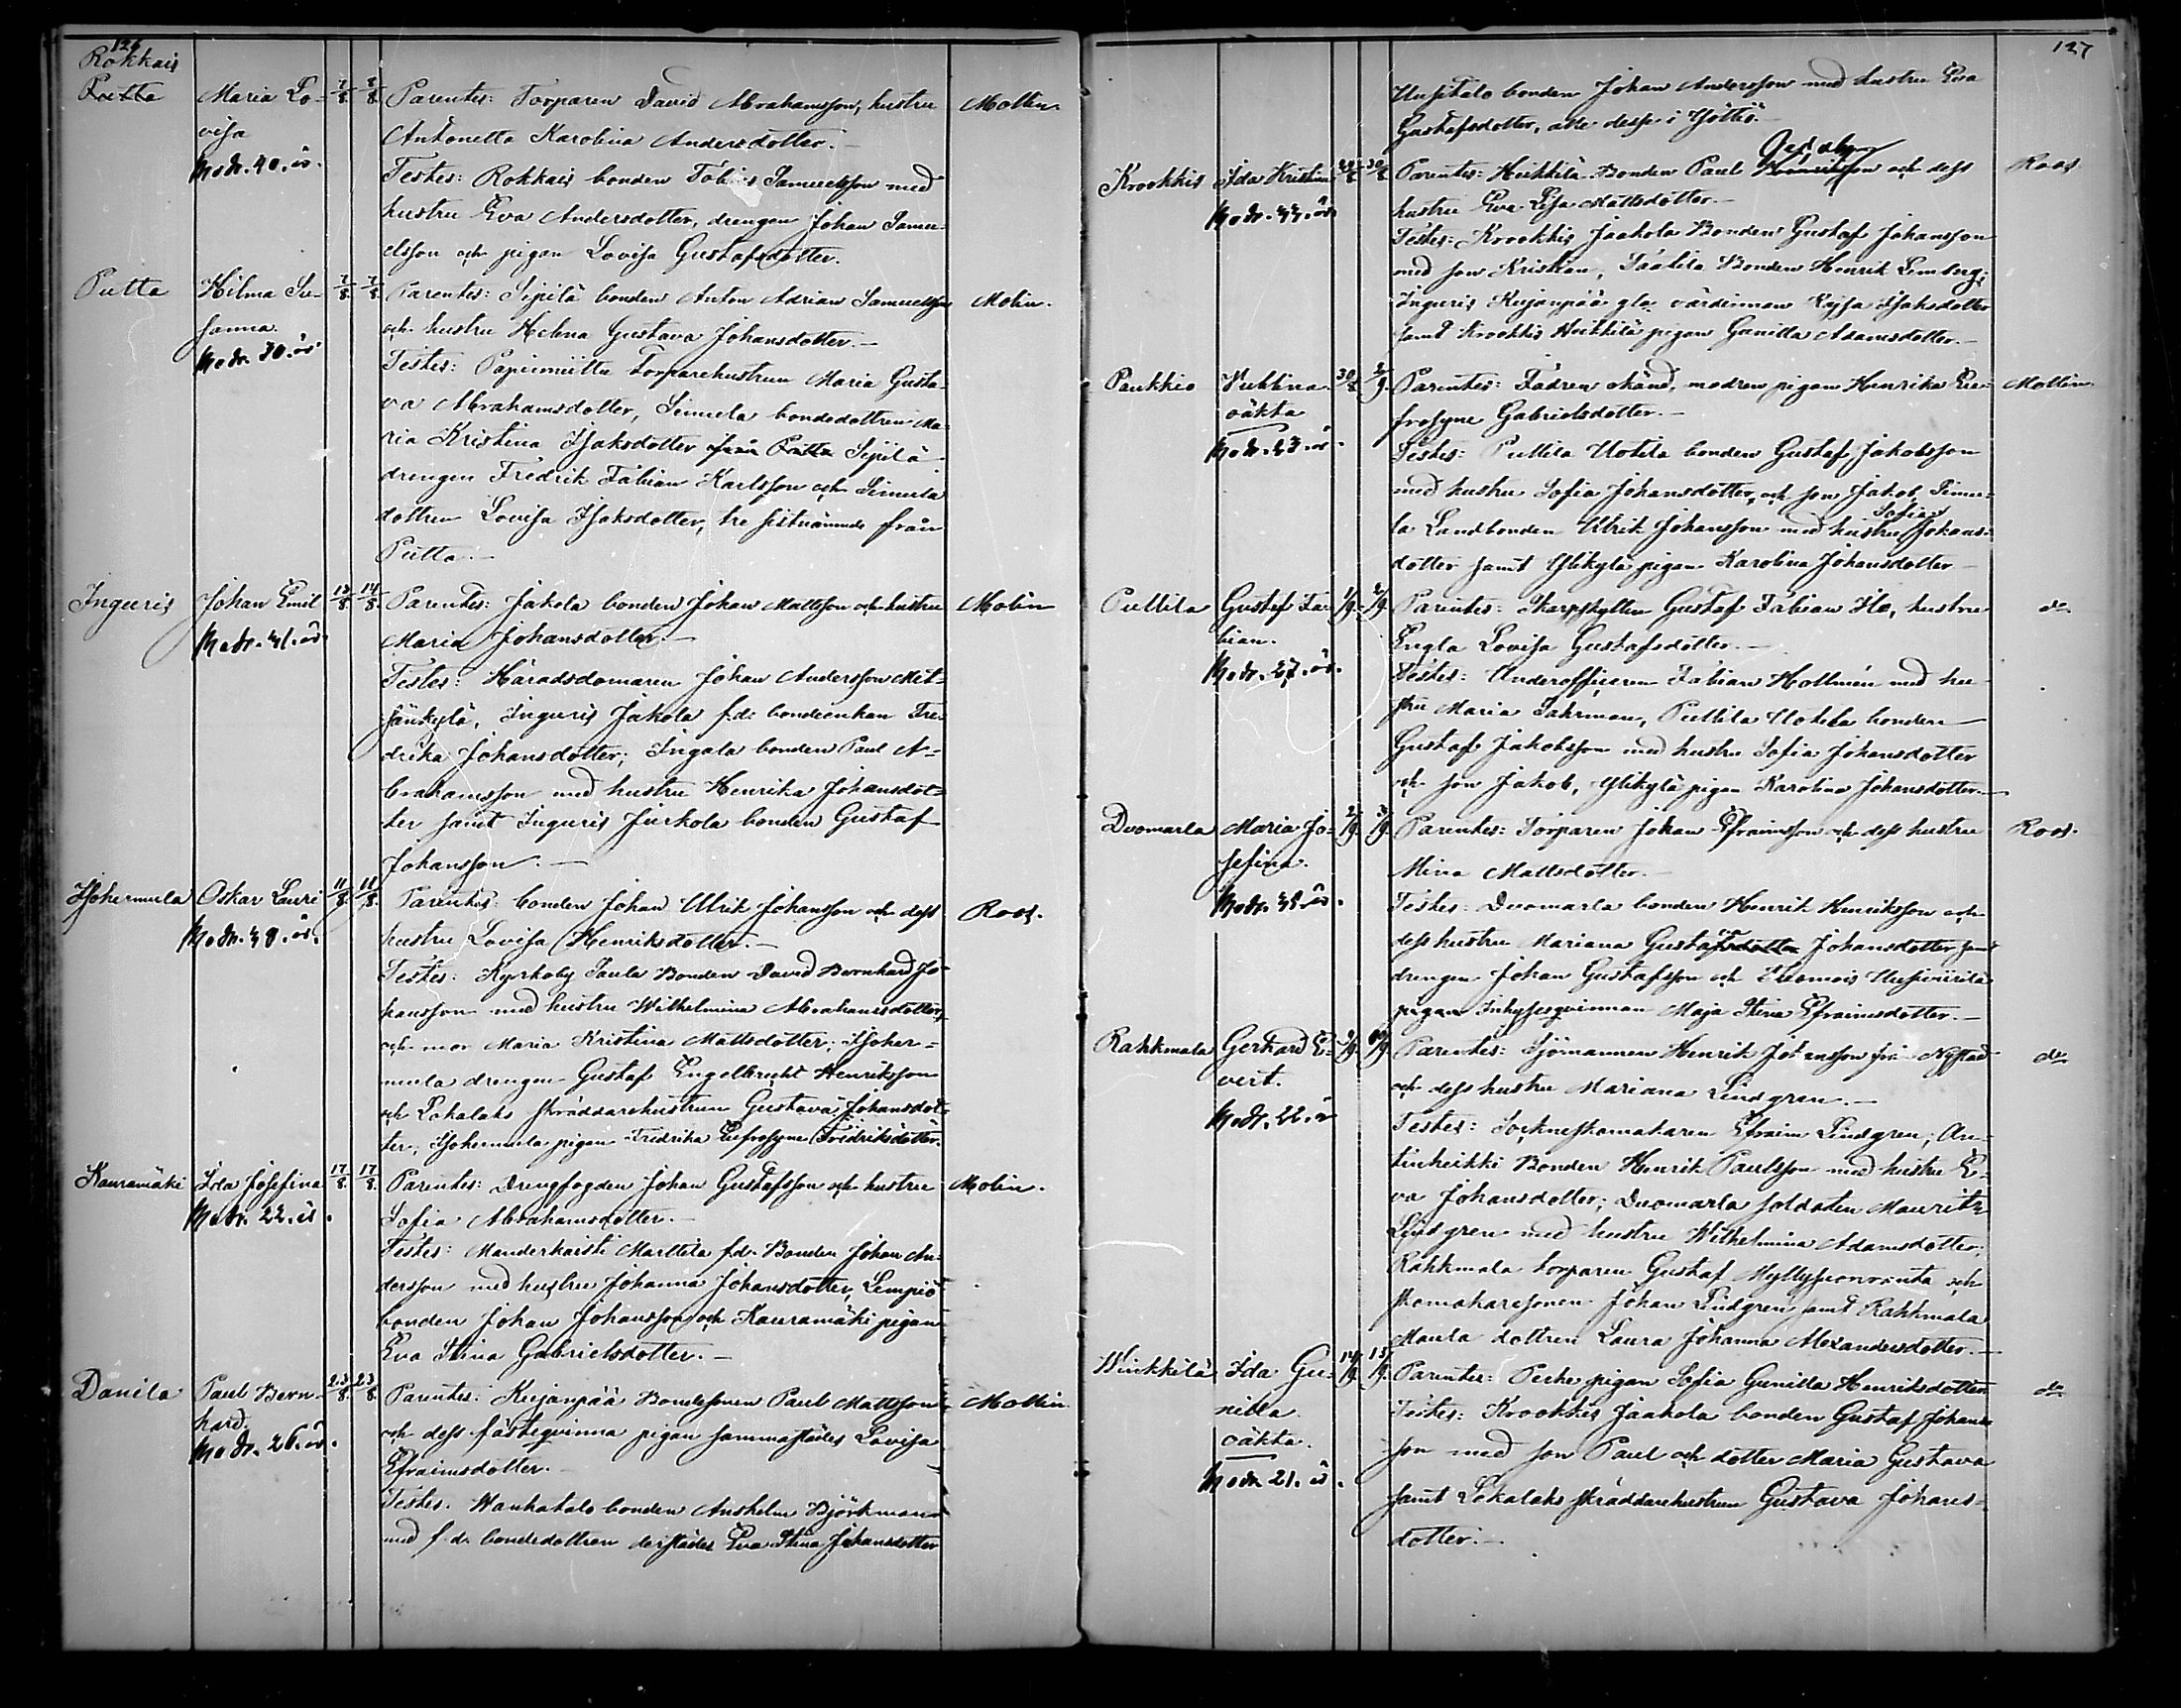 126
Rokkais
Putta Maria Lo- 7/8 8/8 Parentes: Torparen David Abrahamsson, hustru Mollin.
visa Antonetta Karolina Andersdotter.—
Modr. 40. år. Testes: Rokkais bonden Tobias Samuelsson med
hustru Eva Andersdotter, drengen Johan Samu-
elsson och pigan Lovisa Gustafsdotter.
Putta Hilma Su- 7/8 7/8 Parentes: Sipilä bonden Anton Adrian Samuelsson Molin.
sanna. och hustru Helena Gustava Johansdotter.—
Modr. 30. år Testes: Torparehustrun Maria Gusta-
va Abrahamsdotter, Simula bondedottren Ma-
ria Kristina Isaksdotter från Putta Sipilä
drengen Fredrik Fabian Karlsson och Simula
dottren Lovisa Isaksdotter, tre sistnämnde från
Putta.—
Inguris Johan Emil 13/8 14/8 Parentes: Jakola bonden Johan Mattsson och hustru Molin
Modr. 41. år. Maria Johansdotter.—
Testes: Häradsdomaren Johan Andersson Met-
sänkylä, Inguris Jakola f.d. bondeenkan Fre-
drika Johansdotter; Ingala bonden Paul A-
brahamsson med hustru Henrika Johansdot-
ter samt Inguris Jurkola bonden Gustaf
Johansson.—
Ihohermula Oskar Lauri 11/8 11/8 Parentes: bonden Johan Ulrik Johansson och dess Roos.
Modr. 48. år. hustru Lovisa Henriksdotter.—
Testes: Kyrkoby Saula Bonden David Bernhard Jo-
hansson med hustru Wilhelmina Abrahamsdotter,
och mor Maria Kristina Mattsdotter; Ihoher-
mula drengen Gustaf Engelbrecht Henriksson
och Lokalaks skräddarehustrun Gustava Johansdot-
ter, Ihohermula pigan Fredrika Eufrosyne Fredriksdotter.
Kauramäki Ida Josefina 17/8 17/8 Parentes: Drengfogden Johan Gustafsson och hustru Molin.
Modr. 22. år. Sofia Abrahamsdotter.—
Testes: Männäis Marttila f.d. Bonden Johan An-
dersson med hustru Johanna Johansdotter, Lempiö
bonden Johan Johansson och Kauramäki pigan
Eva Stina Gabrielsdotter.—
Danila Paul Bern- 23/8 23/8 Parentes: Kujanpää Bondesonen Paul Mattsson Mollin
hard. och dess fästeqvinna pigan sammastädes Lovisa
Modr. 26. år. Efraimsdotter.—
Testes. Wanhatalo bonden Anshelm Björkman
med f.d. bondedottren derstädes Eva Stina Johansdotter
127
Uusitalo bonden Johan Andersson med hustru Eva
Gustafsdotter, alle desse i
Krookkis Ida Kristina 29/8 30/8 Parentes: Heikkilä Bonden Paul och dess Roos
Modr. 44. år. hustru Eva Lisa Mattsdotter.—
Testes: Krookkis Jaakola Bonden Gustaf Johansson
med son Kristian, Bonden Henrik Lemberg;
Inguris Kujanpää gla värdinnan Kajsa Isaksdotter
samt Krookkis Heikkilä pigan Gunilla Adamsdotter.—
Paukkio Vilhlina. 30/8 2/9 Parentes: Fadren okänd, modren pigan Henrika Eu- Mollin.
oäkta frosyne Gabrielsdotter.—
Modr. 43. år. Testes: Pullila Uotila bonden Gustaf Jakobsson
med hustru Sofia Johansdotter, och son Jakob, Simu-
la Landbonden Ulrik Johansson med hustru Sofia Johans-
dotter samt Ylikylä pigan Karolina Johansdotter—
Pullila Gustaf Fa- 1/9 2/9 Parentes: Skarpskytten Gustaf Fabian Flo, hustru do
bian. Engla Lovisa Gustafsdotter.—
Modr. 27. år. Testes: Underofficeren Fabian Hollmén med hu-
stru Maria Sahrman, Pullila Uotila bonden
Gustaf Jakobsson med hustru Sofia Johansdotter
och son Jakob, Ylikylä pigan Karolina Johansdotter.—
Duomarla Maria Jo- 2/9 3/9 Parentes: Torparen Johan Efraimsson och dess hustru Roos.
sefina. Mina Mattsdotter.—
Testes: Duomarla bonden Henrik Henriksson och
dess hustru Mariana Gustafsdotter Johansdotter samt
drengen Johan Gustafsson och
pigan Inhysesqvinnan Maja Stina Efraimsdotter.—
Rahkmala Gerhard E- Parentes: Sjömannen Henrik Johansson från Nystad do
vert. och dess hustru Mariana Lindgren.—
Modr. 22. år Testes: Sockneskomakaren Efraim Lindgren; An-
tinheikki Bonden Henrik Paulsson med hustru E-
va Johansdotter; Duomarla soldaten Mauritz
Lindgren med hustru Wilhelmina Adamsdotter;
Rahkmala torparen Gustaf och
skomakaresonen Johan Lindgren samt Rahkmala
Maula dottren Laura Johanna Alexandersdotter.—
Winkkilä Ida Gu- 14/9 15/9 Parentes: Perhe pigan Sofia Gunilla Henriksdotter do
nilla. Testes: Krookkis Jaakola bonden Gustaf Johans-
oäkta. son med son Paul och dotter Maria Gustava
Modr. 21. år. samt Lokalaks skräddarehustrun Gustava Johans-
dotter.—